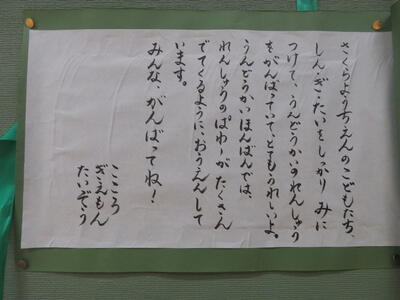 さくらようちえんのこどもたち、
しん・ぎ・たいをしっかり みに
つけて、うんどうかいのれんしゅう
をがんばっていて、とてもうれしいよ。
うんどうかいほんばんでは、
れんしゅうのぱわーが たくさん
でてくるように、おうえんして
います。
みんな、がんばってね！
こころ
ぎえもん
たいぞう